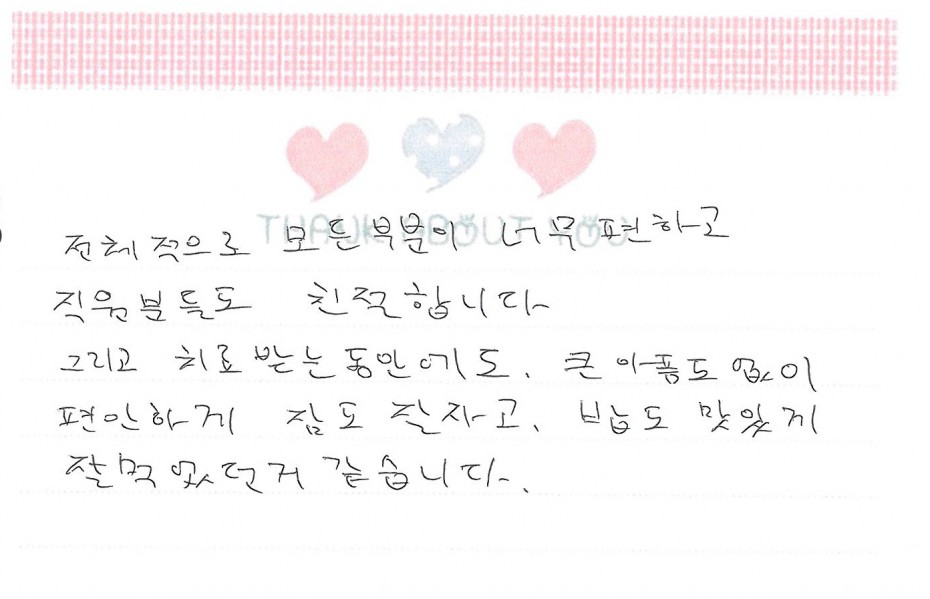 THANK ABOUT YOU
전체적으로 모든부분이 너무 편하고
직원분들도 친절합니다
그리고 치료받는동안에도, 큰아픔도없이
편안하게 잠도 잘자고, 밥도 맛있게
잘먹었던거 같습니다.